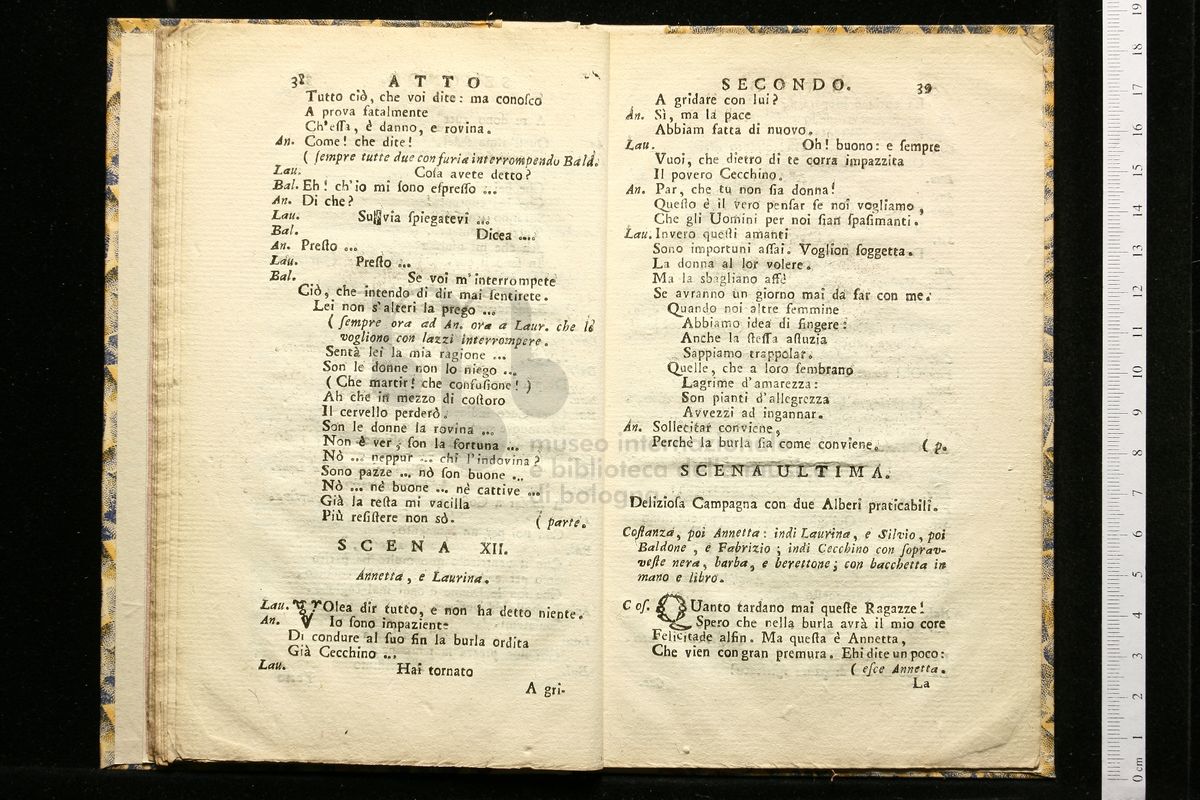 38 ATTO
Tutto ciò, che voi dite: ma conoſco
A prova fatalmente
Ch'eſſa, è danno, e rovina.
An. Come! che dite!
( ſempre tutte due con furia interrompendo Bald.
Lau. Coſa avete detto?
Bal. Eh! ch'io mi ſono eſpreſſo ...
An. Di che?
Lau. Su via ſpiegatevi ...
Bal. Dicea ....
An. Preſto ...
Lau. Preſto ...
Bal. Se voi m'interrompete
Ciò, che intendo di dir mai ſentirete.
Lei non s'alteri la prego ...
( ſempre ora ad An. ora a Laur. che lì
vogliono con lazzi interrompere.
Sentà lei la mia ragione ...
Son le donne non lo niego ...
( Che martir! che confuſione! )
Ah che in mezzo di coſtoro
Il cervello perderò.
Son le donne la rovina ...
Non è ver, ſon la fortuna ...
Nò ... neppur ... chi l'indovina?
Sono pazze ... nò ſon buone ...
Nò ... nè buone ... nè cattive ...
Già la teſta mi vacilla
Più reſiſtere non sò. ( parte.
SCENA XII.
Annetta, e Laurina.
Lau. VOlea dir tutto, e non ha detto niente.
An. Io ſono impaziente
Di condure al ſuo fin la burla ordita
Già Cecchino ...
Lau. Hai tornato
A gri-
SECONDO. 39
A gridare con lui?
An. Sì, ma la pace
Abbiam fatta di nuovo.
Lau. Oh! buono: e ſempre
Vuoi, che dietro di te corra impazzita
Il povero Cecchino.
An. Par, che tu non ſia donna!
Queſto è il vero penſar ſe noi vogliamo,
Che gli Uomini per noi ſian ſpaſimanti.
Lau. Invero queſti amanti
Sono importuni aſſai. Voglion ſoggetta.
La donna al lor volere.
Ma la sbagliano affè
Se avranno un giorno mai da far con me.
Quando noi altre femmine
Abbiamo idea di fingere:
Anche la ſteſſa aſtuzia
Sappiamo trappolar.
Quelle, che a loro ſembrano
Lagrime d'amarezza:
Son pianti d'allegrezza
Avvezzi ad ingannar.
An. Sollecitar conviene,
Perchè la burla ſia come conviene. ( p.
SCENA ULTIMA.
Delizioſa Campagna con due Alberi praticabili.
Coſtanza, poi Annetta: indi Laurina, e Silvio, poi
Baldone, e Fabrizio; indi Cecchino con ſoprav-
veſte nera, barba, e berettone; con bacchetta in
mano e libro.
Coſ. QUanto tardano mai queſte Ragazze!
Spero che nella burla avrà il mio core
Felicitade alfin. Ma queſta è Annetta,
Che vien con gran premura. Ehi dite un poco:
( eſce Annetta.
La
museo internazionale
e biblioteca della musica
di bologna
0 cm 1 2 3 4 5 6 7 8 9 10 11 12 13 14 15 16 17 18 19